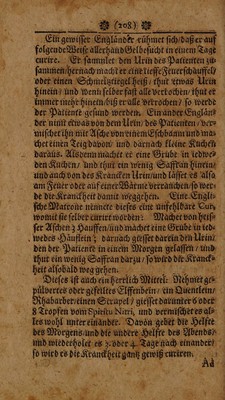 (208)
Ein gewisser Engländer rühmet sich/daß er auf
folgende Weise allerhand Gelbesucht in einem Tage
curire. Er sammlet den Urin des Patienten zu-
sammen/hernach macht er eine tieffe Feuerschäuffel/
oder einen Schmeltztiegel heiß/ thut etwas Urin
hinein/ und wenn selder fast alle verkochen/ thut er
immer mehr hinein/biß er alle verrochen/ so werde
der Patiente gesund werden. Ein ander Englän-
der nimt etwas von dem Urin des Patienten/ ver-
mischet ihn mit Asche von einem Eschbaum und ma-
chet einen Teig davon/ und darnach kleine Kuchen
daraus. Alsdenn machet er eine Grube in iedwe-
den Kuchen/ und thut ein wenig Saffran hinein/
und auch von des Krancken Urin/und lässet es also
am Feuer oder auf einer Wärme verrauchen/so wer-
de die Kranckheit damit weggehen. Eine Engli-
sche Matrone nimmt dieses eine unfehlbare Cur/
womit sie selber curiret worden: Machet von heis-
ser Aschen 3 Hauffen/und machet eine Grube in ied-
wedes Häuflein/ darnach giesset darein den Urin/
den der Patiente in einem Morgen gelassen/ und
thut ein wenig Saffran darzu/ so wird die Kranck-
heit alsobald weg gehen.
Dieses ist auch ein herrlich Mittel: Nehmet ge-
pülvertes oder gefeiltes Elffenbein/ ein Quentlein/
Rhabarber/einen Scrupel/ giesset darunter 6 oder
8 Tropfen vom Spiritu Nitri, und vermischet es al-
les wohl unter einander. Davon gebet die Helfte
des Morgens und die andere Helfte des Abends/
und wiederholet es 3. oder 4. Tage nach einander/
so wird es die Kranckheit gantz gewiß curiren.
Ad